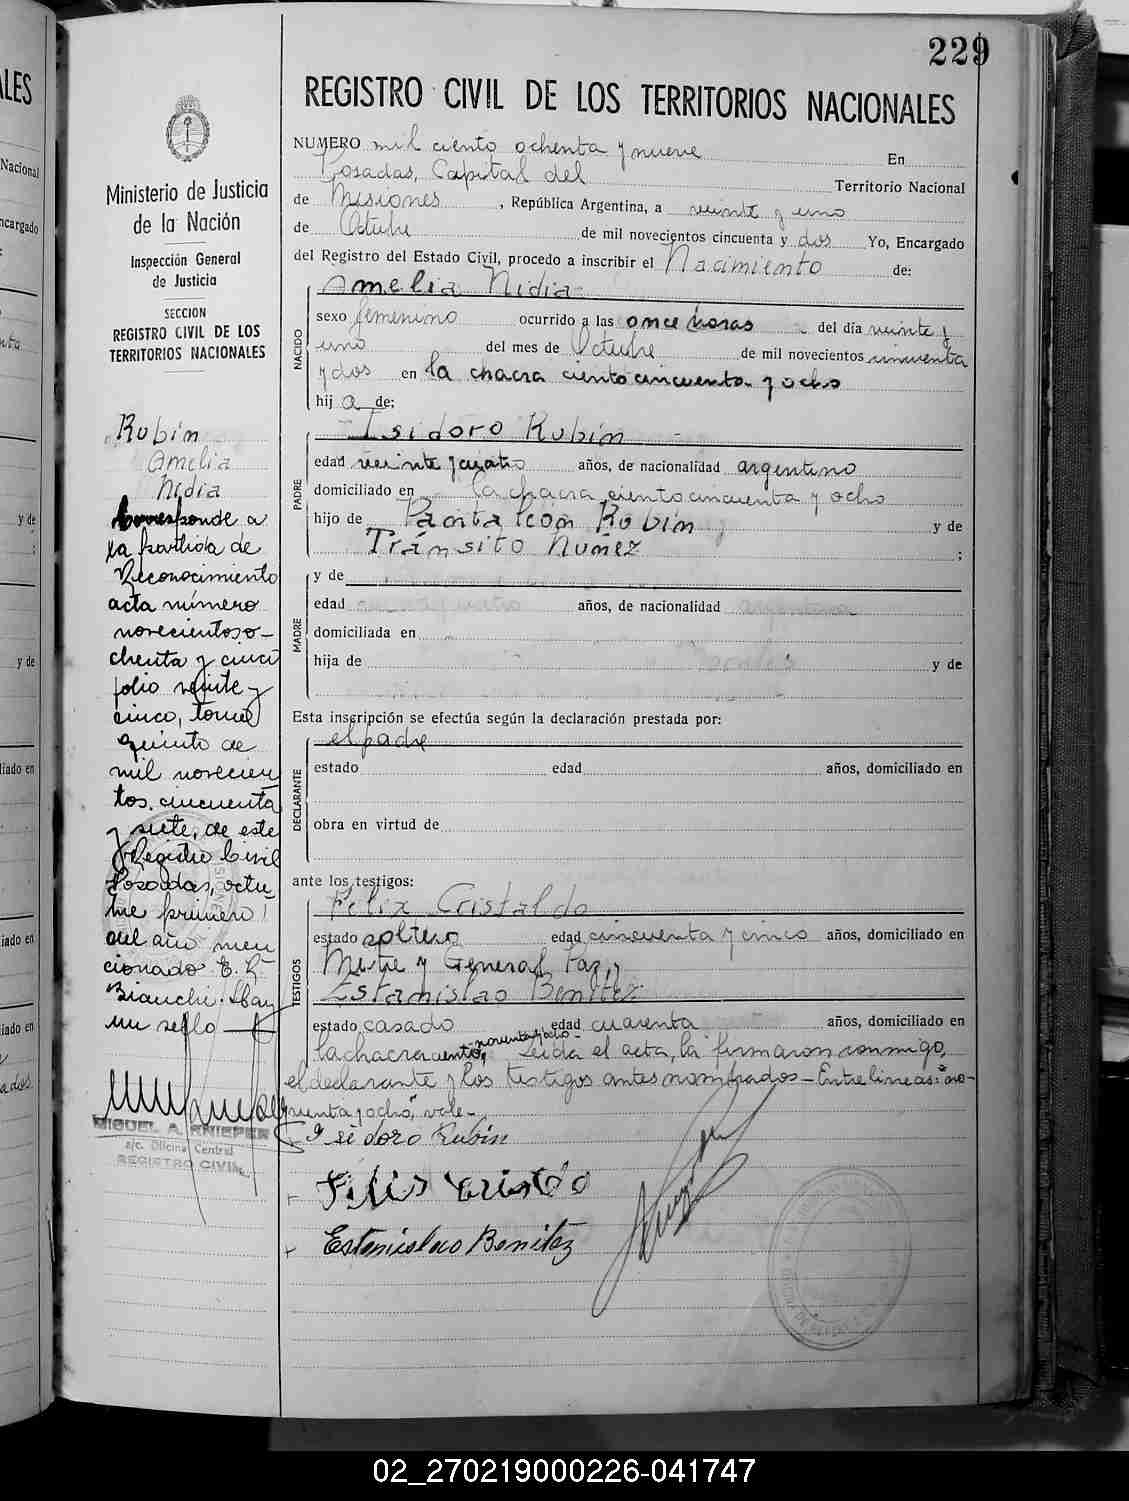 229
REGISTRO CIVIL DE LOS TERRITORIOS NACIONALES
NUMERO mil ciento ochenta y nueve En
Posadas, Capital del Territorio Nacional
de Misiones, República Argentina, a veinte y uno
de Octubre de mil novecientos cincuenta y dos Yo, Encargado
del Registro del Estado Civil, procedo a inscribir el Nacimiento de:
Amelia Nidia
NACIDO
sexo femenino ocurrido a las once horas del día veinte y
uno del mes de Octubre de mil novecientos cincuenta
y dos en la chacra ciento cincuenta y ocho
hij a de:
Isidoro Rubín
PADRE
edad veinte y cuatro años, de nacionalidad argentino
domiciliado en la chacra ciento cincuenta y ocho
hijo de Pantaleón Rubín y de
Tránsito Nuñez ;
MADRE
y de
edad años, de nacionalidad
domiciliada en
hija de y de
Esta inscripción se efectúa según la declaración prestada por:
el padre
DECLARANTE
estado edad años, domiciliado en
obra en virtud de
ante los testigos:
Félix Cristaldo
TESTIGOS
estado soltero edad cincuenta y cinco años, domiciliado en
Mitre y General Paz, y
Estanislao Benítez
estado casado edad cuarenta años, domiciliado en
noventa y ocho
la chacra ciento, Leída el acta, la firmaron conmigo,
el declarante y los testigos antes nombrados - Entre lineas: "no-
venta y ocho", vale-
Isidoro Rubín
Felis Cristado
Estanislao Benitez
Ministerio de Justicia
de la Nación
Inspección General
de Justicia
SECCION
REGISTRO CIVIL DE LOS
TERRITORIOS NACIONALES
Rubín
Amelia
Nidia
Corresponde a
la partida de
Reconocimiento
acta número
novecientos o-
chenta y cinco
folio veinte y
cinco, tomo
quinto de
mil novecien
tos cincuenta
y siete, de este
Registro Civil
Posadas, octu
bre primero
del año men
cionado E. L.
Bianchi. Hay
un sello
MIGUEL A. KNIEPER
a/c. Oficina Central
REGISTRO CIVIL
ALES
Nacional
ncargado
y de
;
y de
liado en
iado en
iado en
02_270219000226-041747